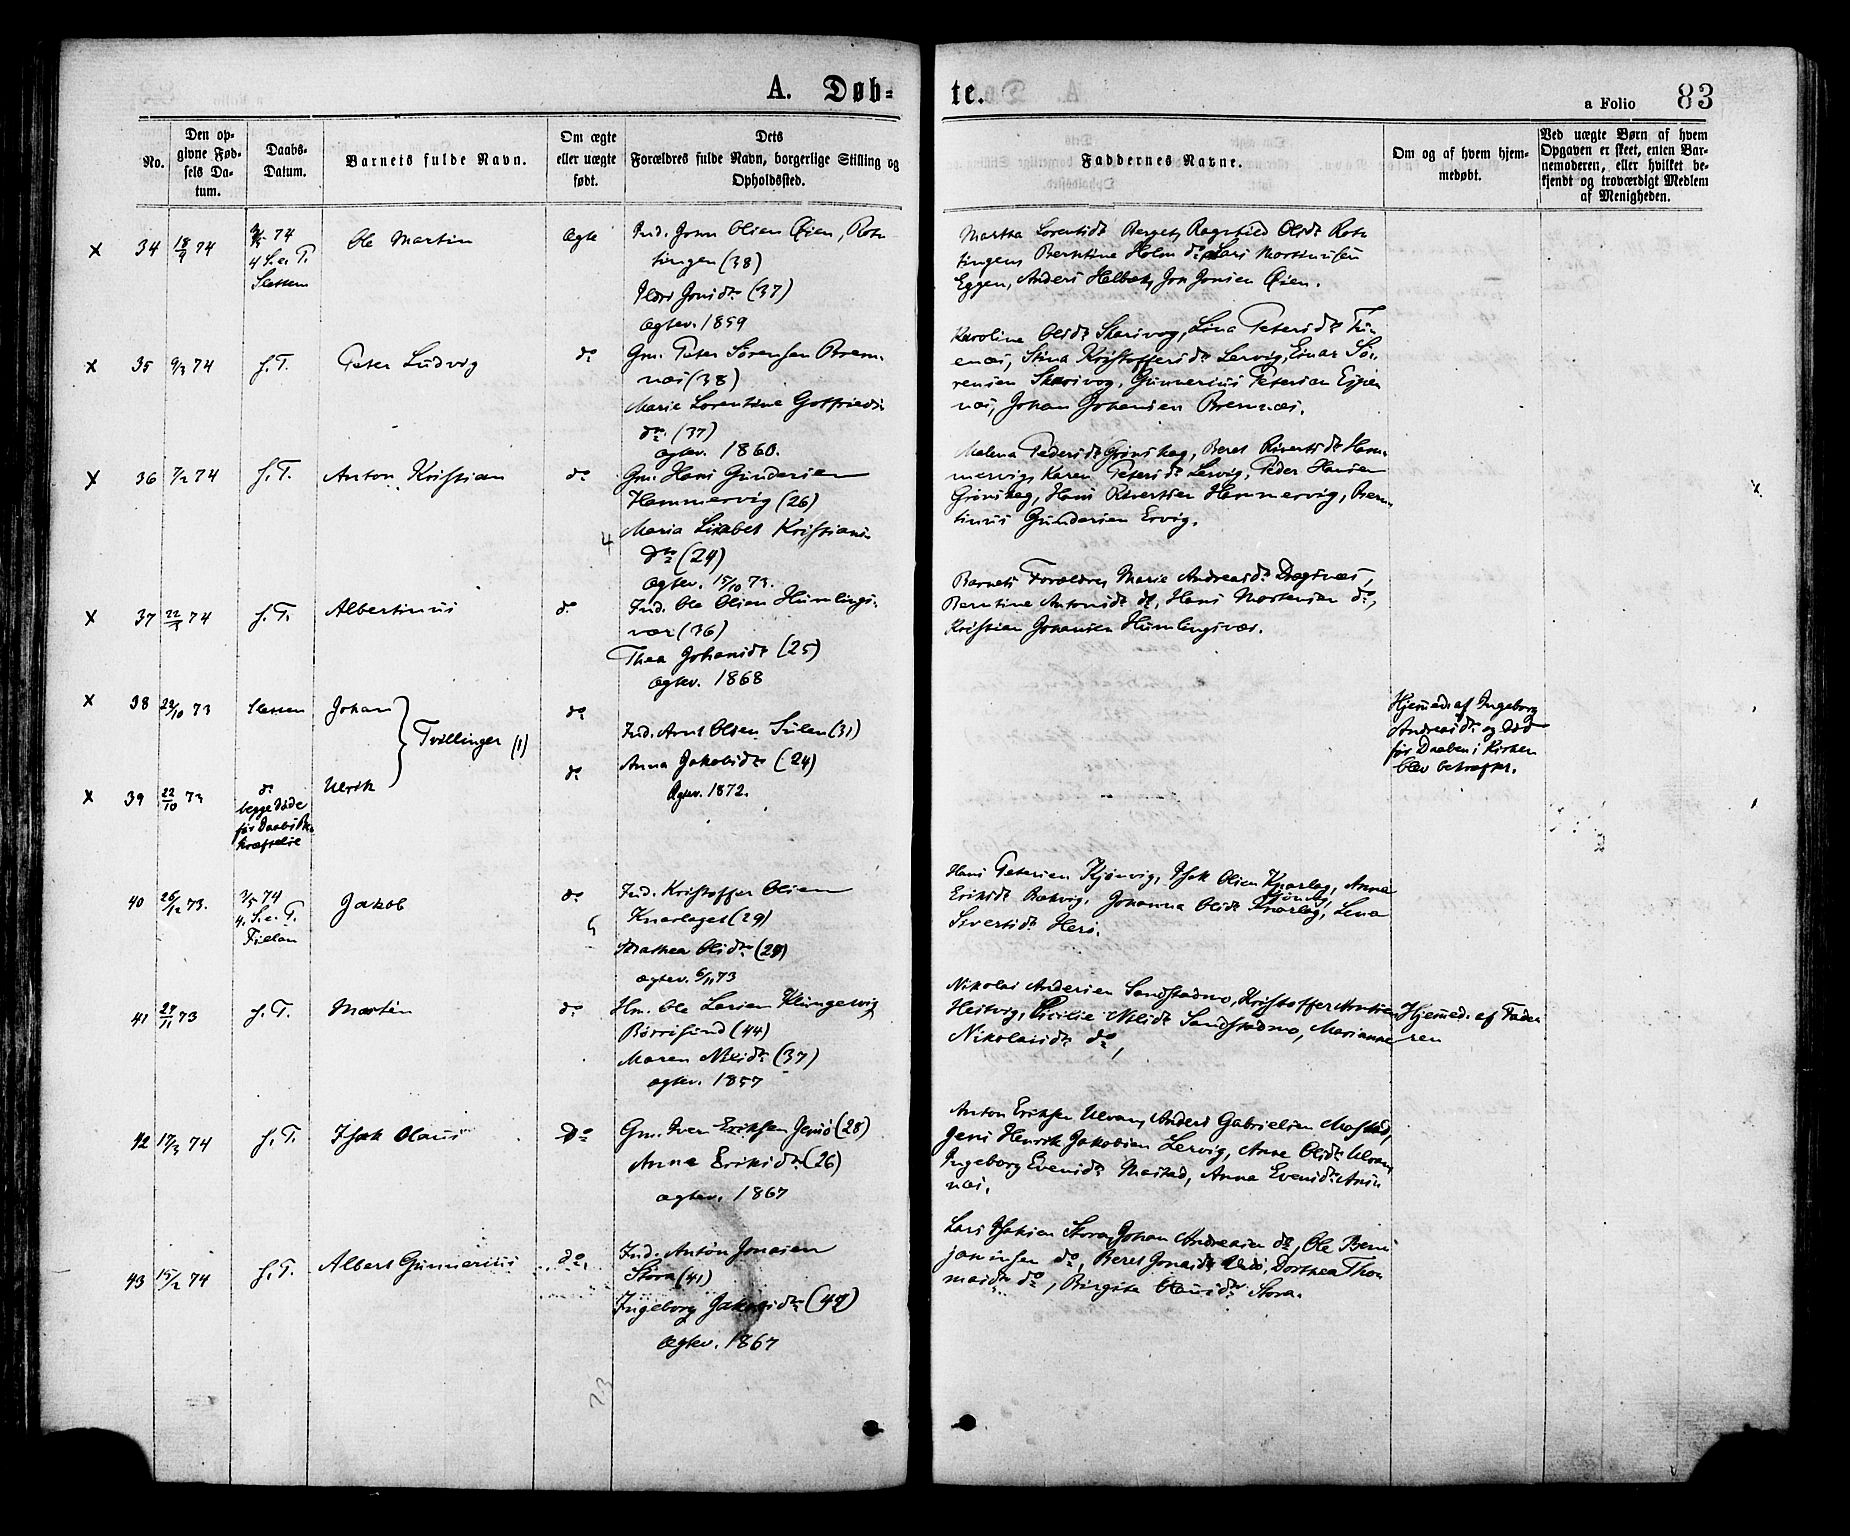 A. Døb=
te.
a Folio 83
No.
Den op-
givne Fød-
sels Da-
tum.
Daabs-
Datum.
Barnets fulde Navn.
Om ægte
eller uægte
født.
Dets
Forældres fulde Navn, borgerlige Stilling og
Opholdssted.
Faddernes Navne.
Om og af hvem hjem-
medøbt.
Ved uægte Børn af hvem
Opgaven er skeet, enten Bar-
nemoderen, eller hvilket be-
kjendt og troværdigt Medlem
af Menigheden.
x 34 74
74
4 S. e. T.
Sletten
Ole Martin
Ægte
Ind. John Olsen Øien, Rot-
tingen (38)
Ildri Jonsdr (37)
Ægtev. 1859
Martha Lorentsdt Berget, Ragnhild Olsdt Rot-
tingen, Berntine Holm do, Lars Mortinusen
Eggen, Anders Helbæk, Jon Jonsen Øien.
x 35 9/3 74
f. T.
Peter Ludvig
do
Gm. Peter Sørensen Brem-
næs (38)
Marie Lorentine Gotfrieds-
dr. (37)
ægtev. 1860.
Karoline Olsdt Skarsvog, Lina Petersdt
Stina Kristoffersdt Lervig, Einar Sø-
rensen Skarsvog, Gunnerius Petersen Espe-
næs, Johan Johansen Bremnæs.
x 36 7/2 74
f. T.
Anton Kristian
do
Gm. Hans Gundersen
Hammervig (26)
4 Maria Lisabet Kristians-
dr (24)
ægtev. 15/10 73.
Malena Pedersdt Grønskag, Beret Sivertsdt Ham-
mervig, Karen Petersdt Lervig, Peder Hansen
Grønskag, Hans Sivertsen Hammervig, Bern-
tinus Gundersen Ervig.
x 37 74
f. T.
Albertinus
do
Ind. Ole Olsen Humlings-
vær (36)
Thea Johansdt (25)
ægtev. 1868
Barnets Forældre, Marie Andreasdt Dragsnæs,
Berntine Antonsdt do, Hans Mortensen do,
Kristian Johansen Humlingsvær.
x 38 22/10 73
Sletten
Johan
Tvillinger (1)
do
Ind. Arnt Olsen Sulen (31)
Anna Jakobsdt (24)
Ægtev. 1872.
Hjemed. af Ingeborg
Andreasdt og død
før Daaben i Kirken
blev bekræftet.
x 39 22/10 73
do
begge døde
før Daabs Be-
kræftelse
Ulrik
do
40 26/12 73.
3/5 74
4. S. e. T.
Fillan
Jakob
do
Ind. Kristoffer Olsen
Knarlaget (29)
5
Mathea Olsdr (24)
ægtev. 6/11 73
Hans Petersen Kjørvig, Isak Olsen Knarlag, Anne
Eriksdt Bekvig, Johanna Olsdt Knarlag, Lena
Sivertsdt Hers.
41 27/11 73
f. T.
Martin
do
Hm. Ole Larsen Klungervig
Børrøsund (44)
Maren Nilsdr (37)
ægtev. 1857
Nikolai Andersen Sandstadmo, Kristoffer Arntsen
Hestvig, Cicilie Nilsdt Sandstadmo, Marianne
Nikolaisdt do,
Hjemed. af Fade-
ren
42 17/3 74
f. T.
Isak Olaus
Do
Gm. Iver Eriksen Jensø (28)
Anna Eriksdr (26)
ægtev. 1867
Anton Eriksen Ulvan, Anders Gabrielsen Mastad,
Jens Henrik Jakobsen Lervig, Anne Olsdt Ulvan,
Ingeborg Evensdt Mastad, Anna Evensdt
næs.
43 15/2 74
f. T.
Albert Gunnerius
do.
Ind. Anton Jonasen
Stora (41)
Ingeborg Jakobsdr (44)
Ægtev. 1867
Lars Isaksen Stora, Johan Andreasen do, Ole Ben-
jaminsen do, Beret Jonasdt Ulvø, Dorthea Tho-
masdt do, Birgitte Olausdt Stora.
23